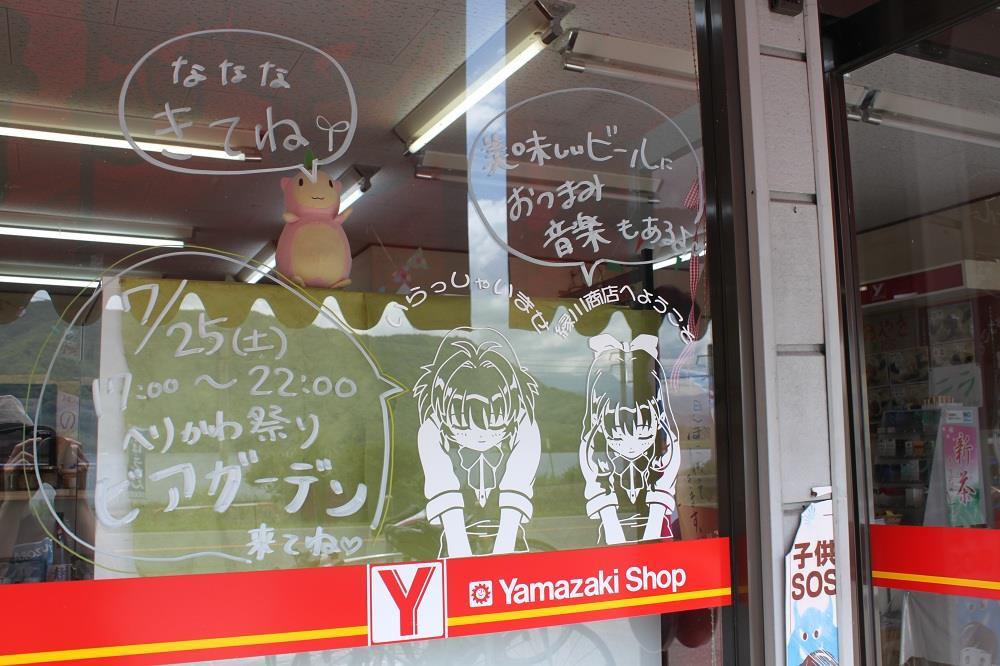 ななな
きてね
美味しいビールに
おつまみ
音楽もある♪
いらっしゃいませ
縁川商店へようこそ
7/25(土)
17:00～22:00
へりかわ祭り
ビアガーデン
来てね♡
Y Yamazaki Shop
子供
SOS
新茶